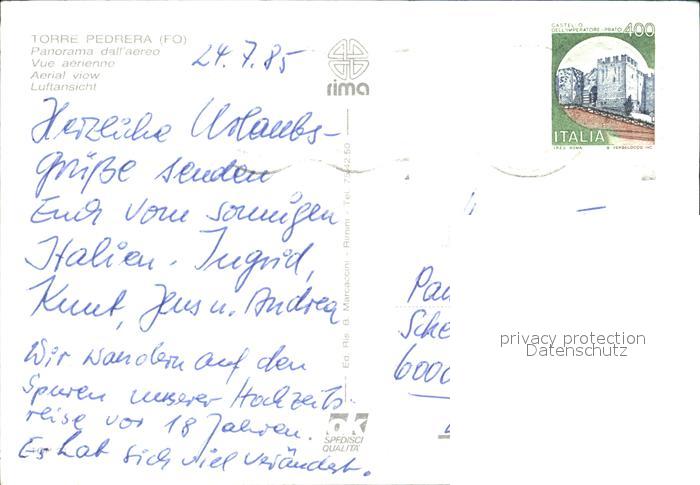 TORRE PEDRERA (FO)
Panorama dall'aereo
Vue aérienne
Aerial view
Luftansicht
24.7.85
rima
CASTELLO
DELL'IMPERATORE-PRATO 400
ITALIA
Herzliche Urlaubs-
grüße senden
Euch vom sonnigen
Italien. Ingrid,
Kunt, Jens u. Andrea
Wir wandern auf den
Spuren unserer Hochzeits-
reise vor 18 Jahren.
Es hat sich viel verändert.
Ed. Ris. B. Marcaccini - Rimini - Tel.
Pau
Sche
6000
privacy protection
Datenschutz
ok
SPEDISCI
QUALITA'